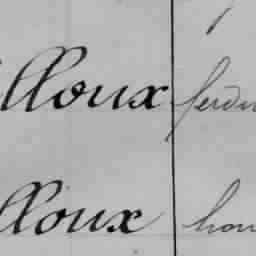 lloux ferdin
lloux hon